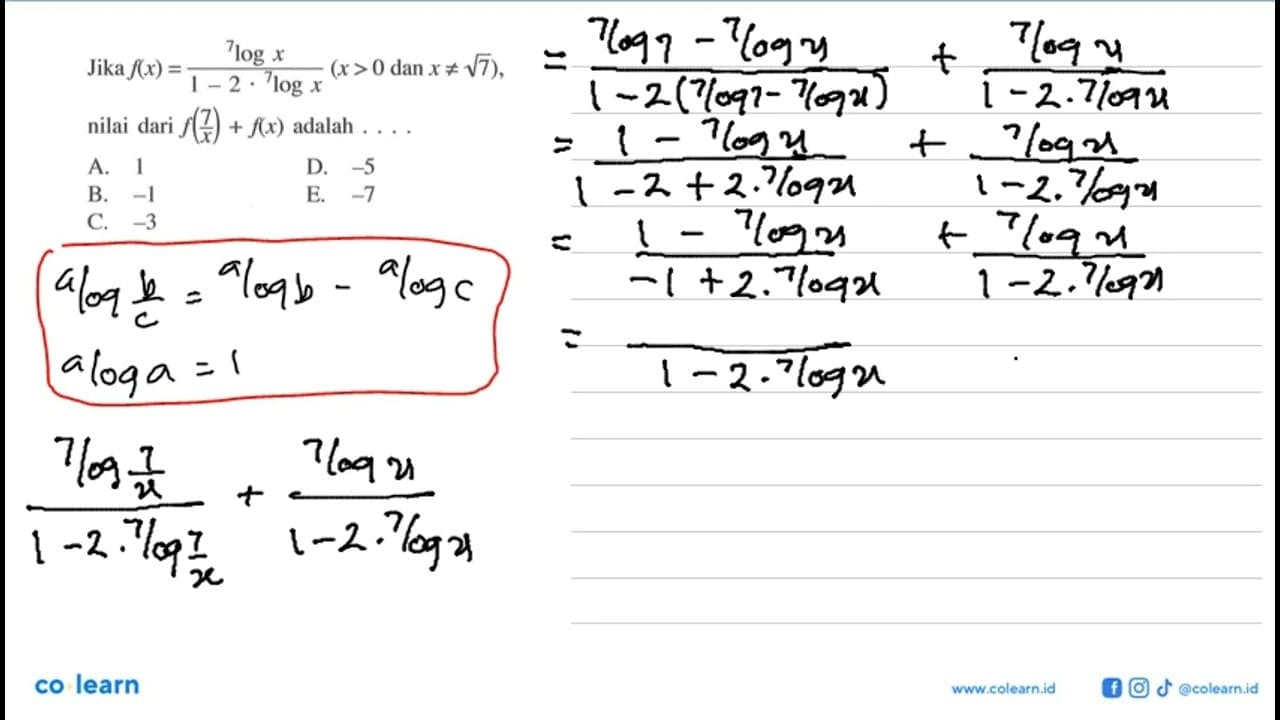 Jika f(x) = ⁷log x / 1 – 2 · ⁷log x (x > 0 dan x ≠ √7),
nilai dari f(7/x) + f(x) adalah . . . .
A. 1 D. –5
B. –1 E. –7
C. –3
ᵃlog b/c = ᵃlog b – ᵃlog c
ᵃlog a = 1
⁷log 7/x / 1 – 2 . ⁷log 7/x + ⁷log x / 1 – 2 . ⁷log x
= ⁷log 7 – ⁷log x / 1 – 2(⁷log 7 – ⁷log x) + ⁷log x / 1 – 2 . ⁷log x
= 1 – ⁷log x / 1 – 2 + 2 . ⁷log x + ⁷log x / 1 – 2 . ⁷log x
= 1 – ⁷log x / –1 + 2 . ⁷log x + ⁷log x / 1 – 2 . ⁷log x
= / 1 – 2 . ⁷log x
co learn
www.colearn.id
@colearn.id